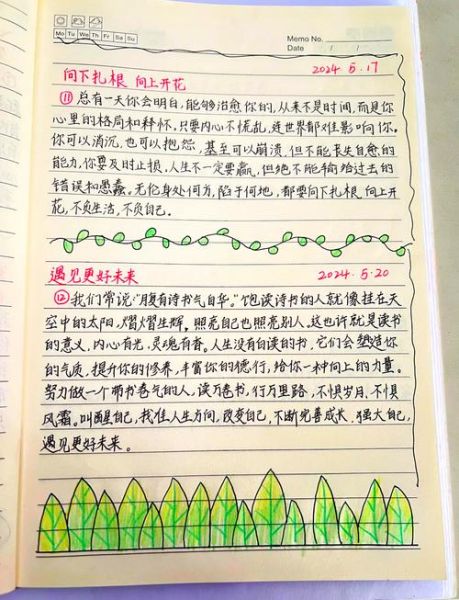 Mo Tu We Th Fr Sa Su
Memo No.
Date / /
2024.5.17
向下扎根 向上开花
⑪ 总有一天你会明白,能够治愈你的,从来不是时间,而是你
心里的格局和释怀,只要内心不慌乱,连世界都难影响你。
你可以消沉,也可以抱怨,甚至可以崩溃,但不能丧失自愈的
能力,你要及时止损,人生不一定要赢,但绝不能输给过去的
错误和愚蠢,无伦身处何方,陷于何地,都要向下扎根,向上开
花,不负生活,不负自己。
遇见更好未来
2024.5.20
⑫ 我们常说:"腹有诗书气自华。"饱读诗书的人就像挂在天
空中的太阳,熠熠生辉,照亮自己也照亮别人。这也许就是读书
的意义,内心有光,灵魂有香。人生没有白读的书,它们会塑造你
的气质,提升你的修养,丰富你的德行,给你一种向上的力量。
努力做一个带书卷气的人,读万卷书,行万里路,不惧岁月,不惧
风霜。叫醒自己,找准人生方向,改变自己,不断完善成长,强大自己,
遇见更好未来。